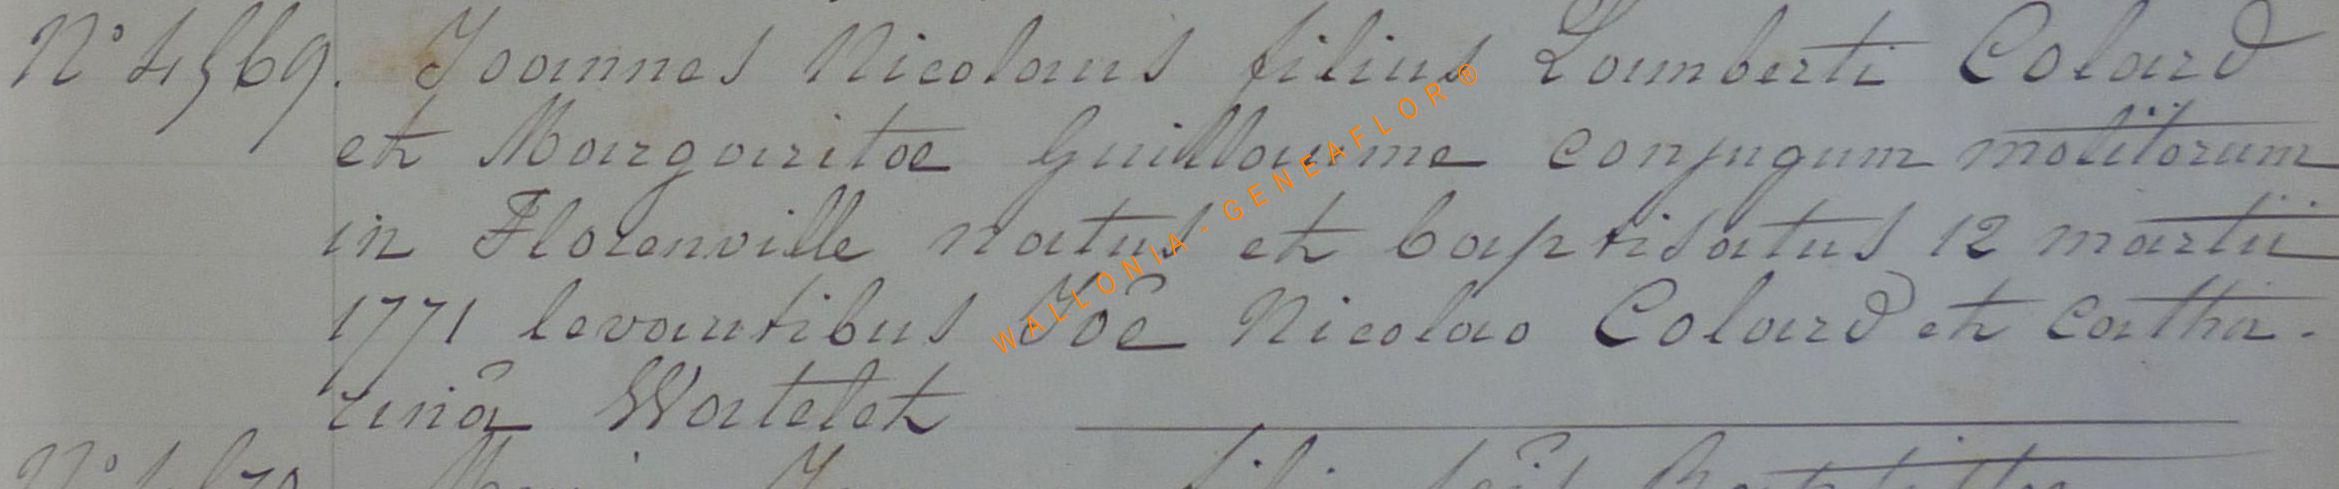 N° 4569. Joannes Nicolaus filius Lamberti Colard
et Margaritae Guillaume conjugum molitorum
in Florenville natus et baptisatus 12 martii
1771 levantibus Joê Nicolao Colard et Catha-
rinâ Watelet
WALLONIA - GENEAFLOR®